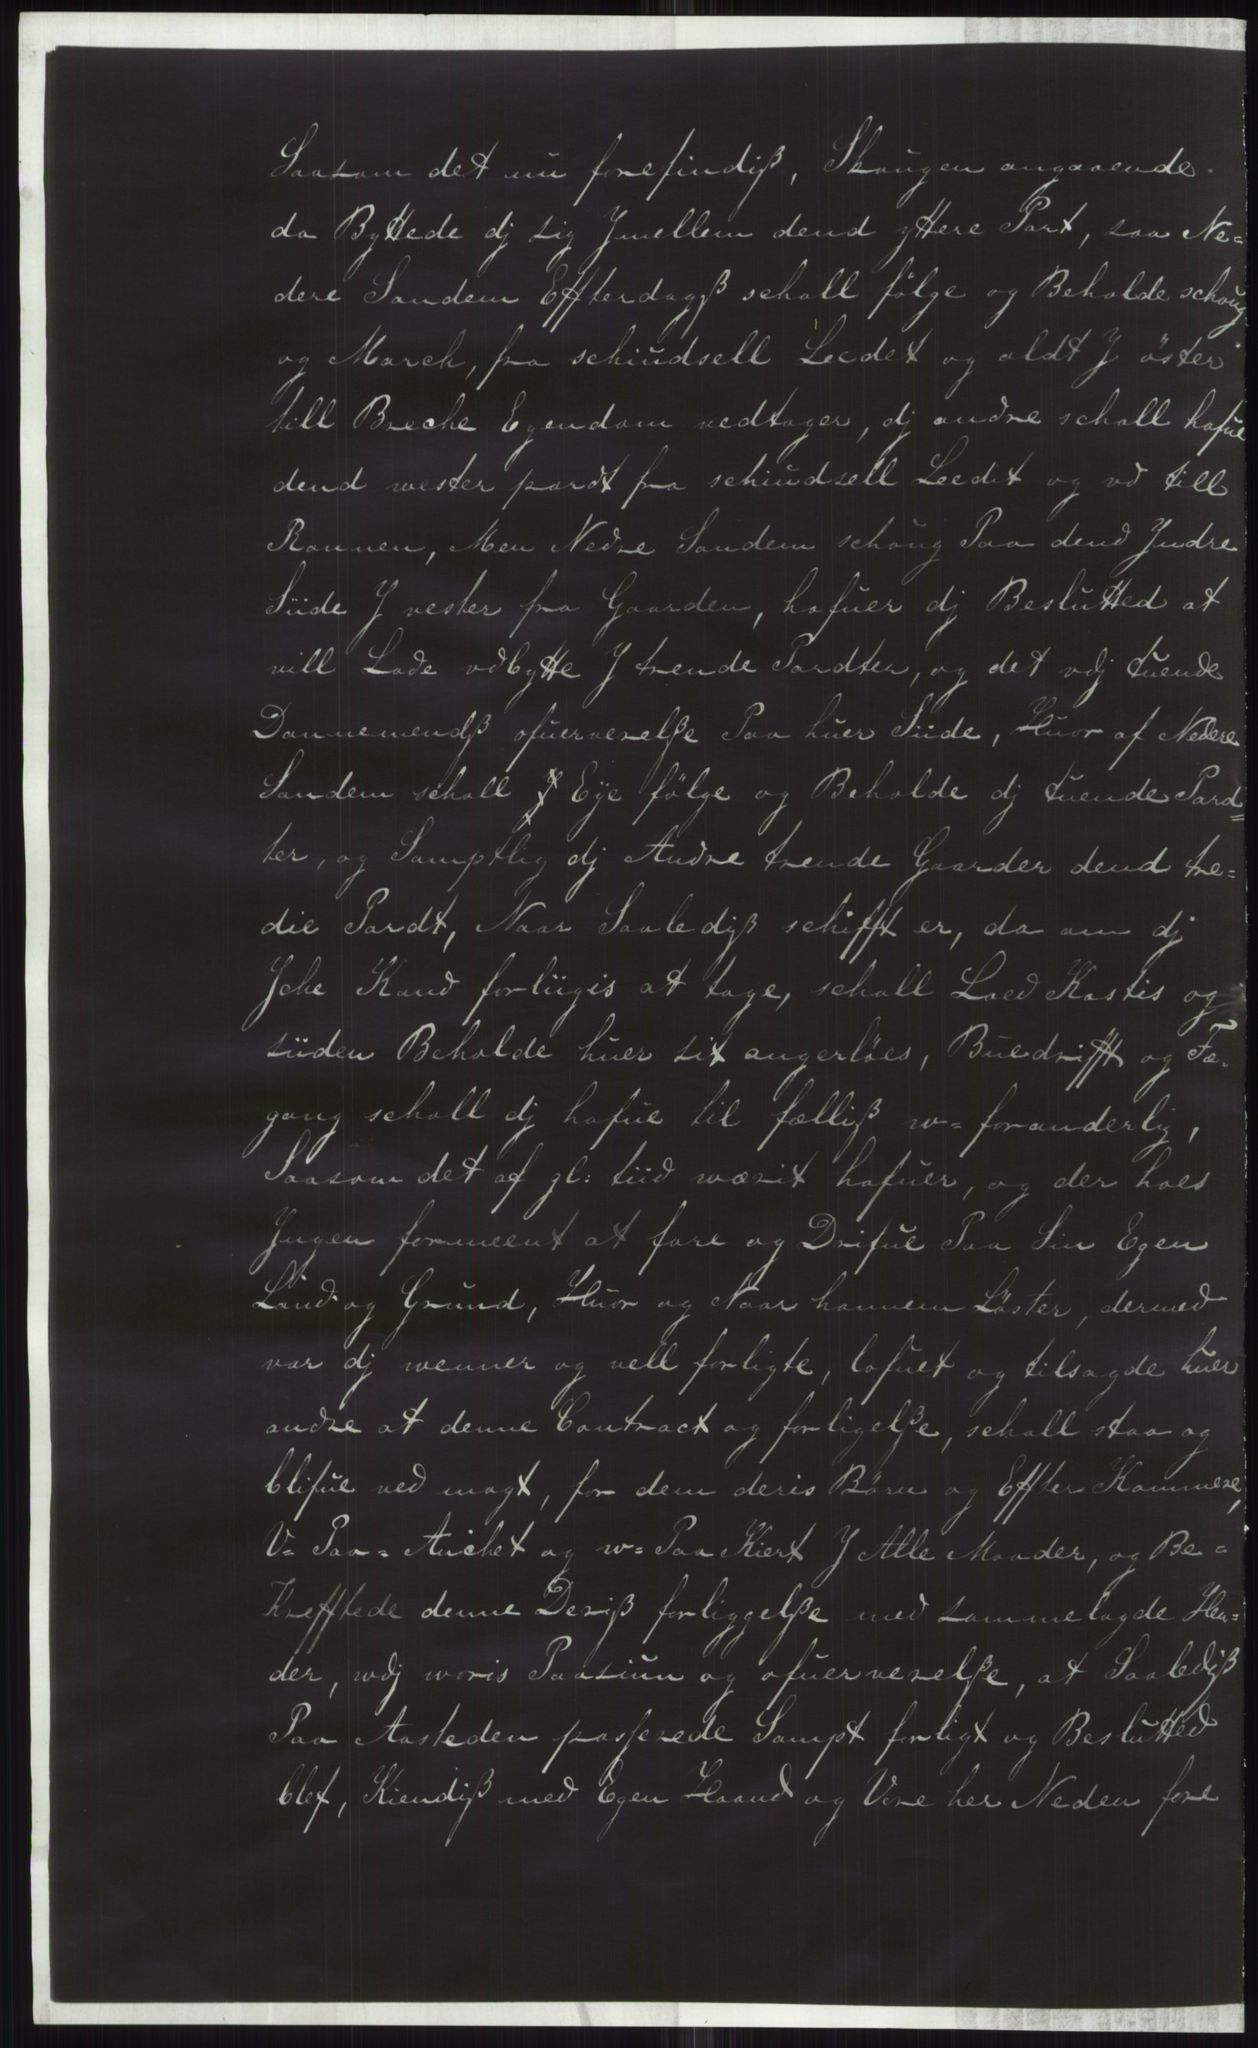 Saasom det nu forefindiß, Skougen angaaende.
da Byttede dj sig Jmellem dend yttere Part, saa Ne=
dere Sandem Effterdagß schall fölge og Beholde schoug
og March, fra schiudsell Leedet og aldt J öster
till Breche Egendom vedtager, dj andre schall hafue
dend wester pardt fra schiudsell Leedit og vd till
Rannen, Men Nedre Sandem schoug Paa dend Jndre
Siide J vester fra Gaarden, hafuer dj Besluttted at
vill Lade vdbytte J trende Pardter, og det vdj tuende
Dannemendß ofuerverelße Paa huer Siide, Huor af Nedere
Sandem schall Eÿe fölge og Beholde dj tuende Pard=
ter, og Samptlig dj Andre trende Gaarder dend tre=
die Pardt, Naar Saaledyß schifft er, da om dj
Jche Kand forliigis at tage, schall Laed Kastis og
siiden Beholde huer sit angerlöes, Buedrifft og Fæ=
gang schall dj hafue til fælliß w=foranderlig,
Saasom det af gl: tiid værit hafuer, og der hoes
Jngen formeent at fare og Drifue Paa Sin Egen
Land og Grund, Huor og Naar hannem Löster, dermed
var dj wenner og vell forligte, lofuet og tilsagde huer
andre at denne Contract og forligelße, schall staa og
blifue ved magt, for dem deris Börn og Effter Kommere,
V=Paa=Anchet og w=Paa Kiert J Alle Maader, og Be=
Krefftede denne Deriß forliggelße med sammelagde Hen=
der, vdj woris Paasiun og ofuerverelße, at Saaledyß
Paa Aasteden passerede Sampt forligt og Besluttted
blef, Kiendiß med Egen Haand og Vore her Neden fore